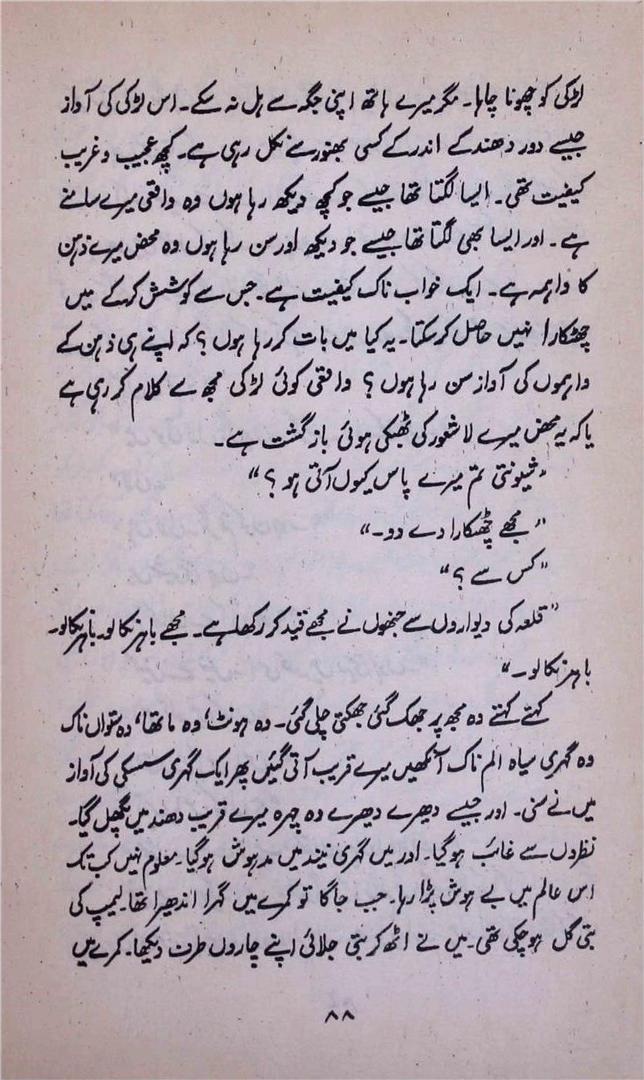 لڑکی کو چھونا چاہا۔ مگر میرے ہاتھ اپنی جگہ سے ہل نہ سکے۔ اس لڑکی کی آواز
جیسے دور دھند کے اندر کے کسی بھنور سے نکل رہی ہے۔ کچھ عجیب و غریب
کیفیت تھی۔ ایسا لگتا تھا جیسے جو کچھ دیکھ رہا ہوں وہ واقعی میرے سامنے
ہے۔ اور ایسا بھی لگتا تھا جیسے جو دیکھ اور سن رہا ہوں وہ محض میرے ذہن
کا واہمہ ہے۔ ایک خواب ناک کیفیت ہے۔ جس سے کوشش کر کے میں
چھٹکارا نہیں حاصل کر سکتا۔ یہ کیا میں بات کر رہا ہوں؟ کہ اپنے ہی ذہن کے
واہموں کی آواز سن رہا ہوں؟ واقعی کوئی لڑکی مجھ سے کلام کر رہی ہے
یا کہ یہ محض میرے لاشعور کی بھٹکی ہوئی بازگشت ہے۔
"شیونتی تم میرے پاس کیوں آتی ہو؟"
"مجھے چھٹکارا دے دو۔"
"کس سے؟"
"قلعہ کی دیواروں سے جنھوں نے مجھے قید کر رکھا ہے۔ مجھے باہر نکالو۔ باہر نکالو۔
باہر نکالو۔"
کہتے کہتے وہ مجھ پر جھک گئی جھکتی چلی گئی۔ وہ ہونٹ، وہ ماتھا، وہ ستواں ناک
وہ گہری سیاہ الم ناک آنکھیں میرے قریب آتی گئیں پھر ایک گہری سسکی کی آواز
میں نے سنی۔ اور جیسے دھیرے دھیرے وہ چہرہ میرے قریب دھند میں پگھل گیا۔
نظروں سے غائب ہو گیا۔ اور میں گہری نیند میں مدہوش ہو گیا۔ معلوم نہیں کب تک
اس عالم میں بے ہوش پڑا رہا۔ جب جاگا تو کمرے میں گہرا اندھیرا تھا۔ لیمپ کی
بتی گل ہو چکی تھی۔ میں نے اٹھ کر بتی جلائی اپنے چاروں طرف دیکھا۔ کمرے میں
۸۸